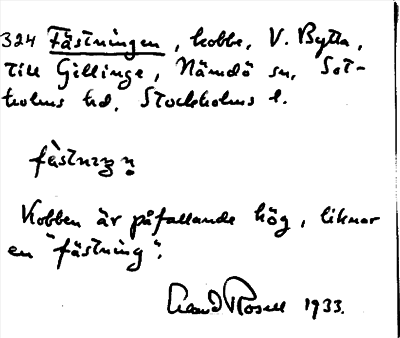 324 Fästningen, kobbe, V. Bytta,
till Gillinge, Nämdö sn, Sot-
holms hd. Stockholms l.
fàstnıŋ
Kobben är påfallande hög, liknar
en "fästning".
Rosell 1933.